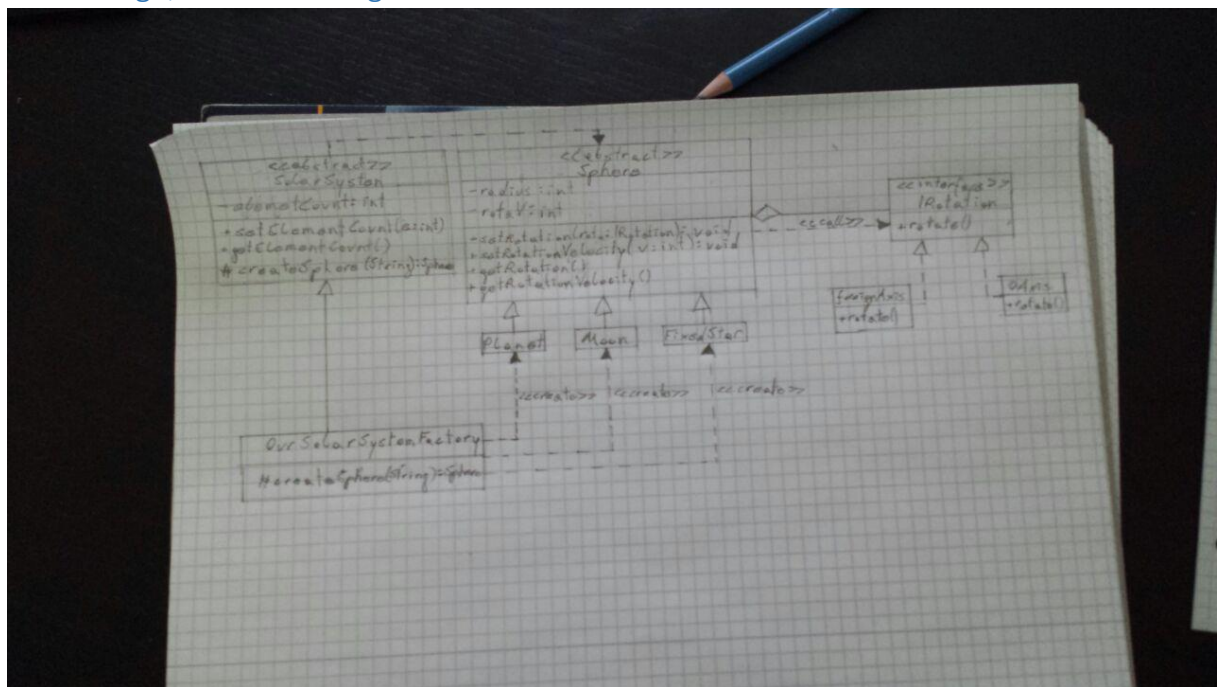 <<abstract>>
SolarSystem
-elementCount: int
+setElementCount(e:int)
+getElementCount()
#createSphere(String):Sphere
<<abstract>>
Sphere
-radius: int
-rotaV: int
+setRotationVelocity(v:int): void
+getRotation()
+getRotationVelocity()
<<call>>
<<interface>>
IRotation
+rotate()
foreignAxis
+rotate()
+rotate()
Planet
Moon
FixedStar
<<create>>
<<create>>
<<create>>
OurSolarSystemFactory
#createSphere(String):Sphere